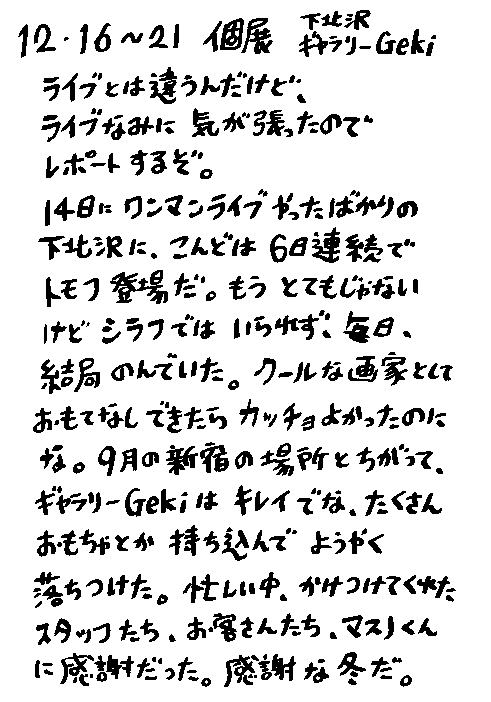 12・16〜21 個展 下北沢
ギャラリーGeki
ライブとは違うんだけど、
ライブなみに 気が張ったので
レポートするぞ。
14日に ワンマンライブ やったばかりの
下北沢に、こんどは 6日連続で
トモフ 登場だ。もう とてもじゃない
けど シラフでは いられず、毎日、
結局 のんでいた。クールな画家として
おもてなしできたら カッチョよかったのに
な。9月の新宿の場所とちがって、
ギャラリーGekiは キレイでな、たくさん
おもちゃとか 持ち込んで ようやく
落ちつけた。忙しい中、かけつけてくれた
スタッフたち、お客さんたち、マスノくん
に感謝だった。感謝な冬だ。